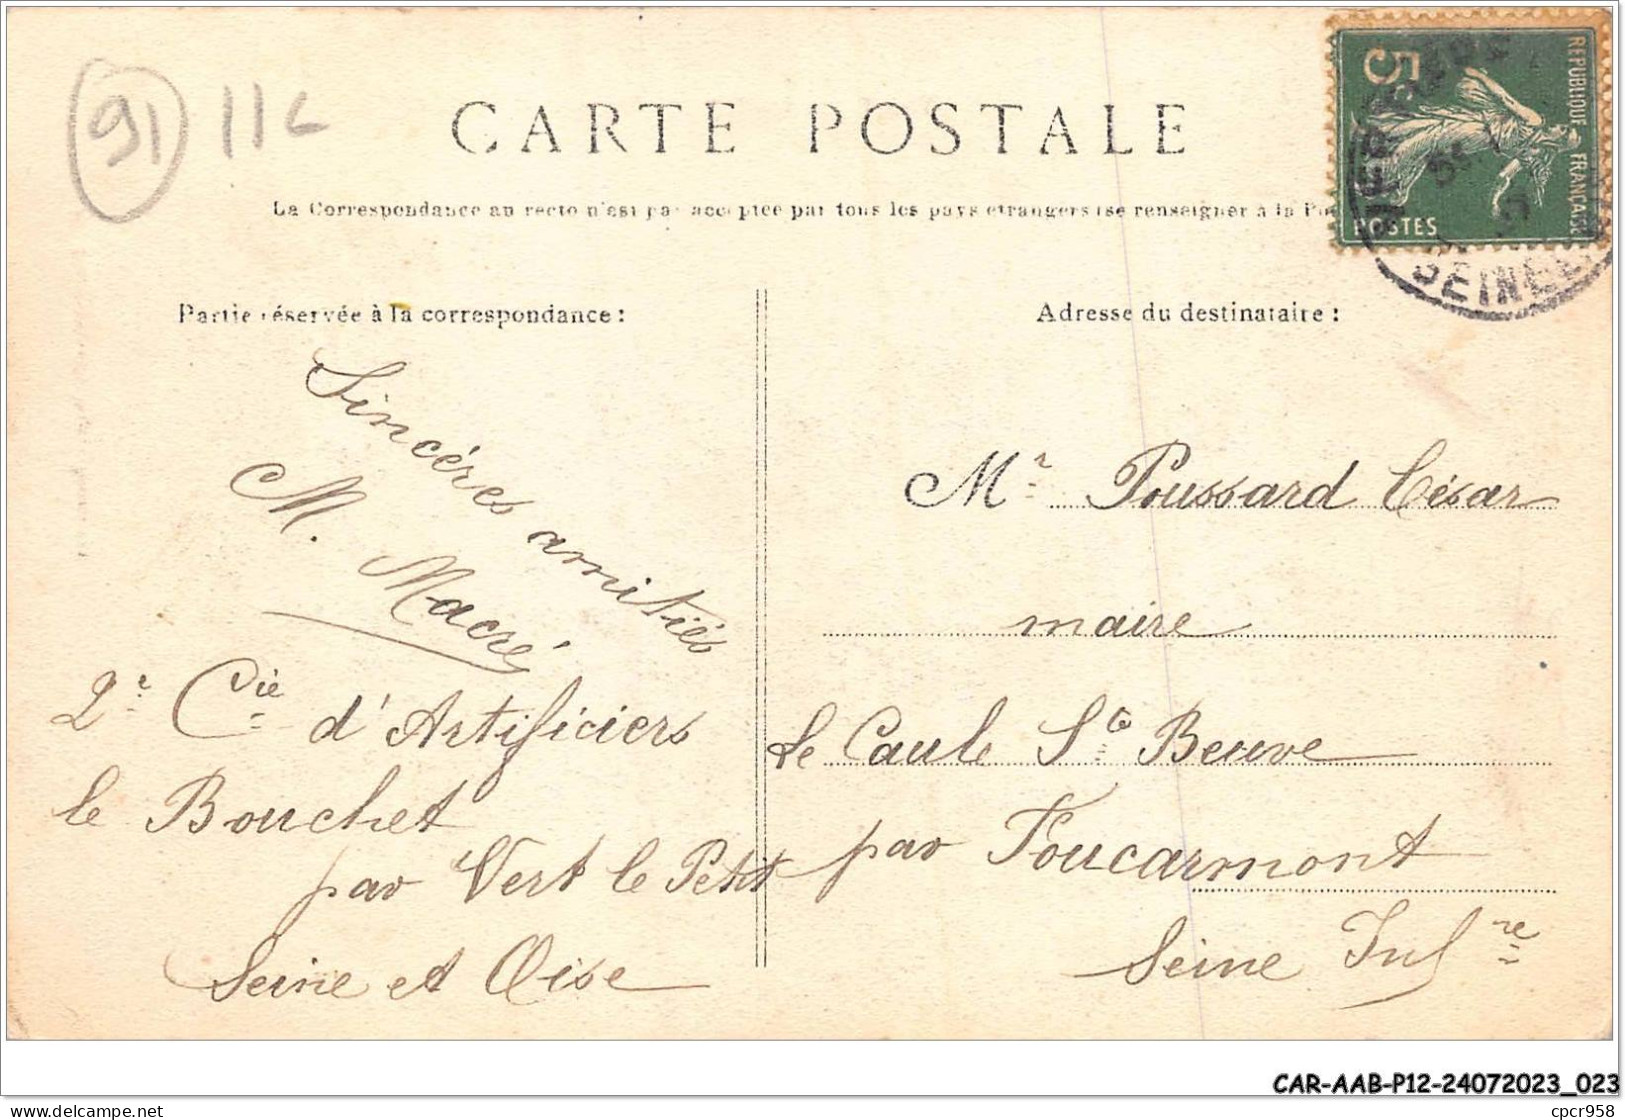 91 11c
CARTE POSTALE
La Correspondance au recto n'est pas acceptée par tous les pays étrangers (se renseigner à la
REPUBLIQUE FRANÇAISE
5
POSTES
Partie réservée à la correspondance :
Sincères amitiés
M. Macré
2e Cie d'Artificiers
le Bouchet
par Vert le Petit
Seine et Oise
Adresse du destinataire :
Mr Poussard César
maire
Le Caule Ste Beuve
par Foucarmont
Seine Infre
CAR-AAB-P12-24072023_023
delcampe.net
cpcr958